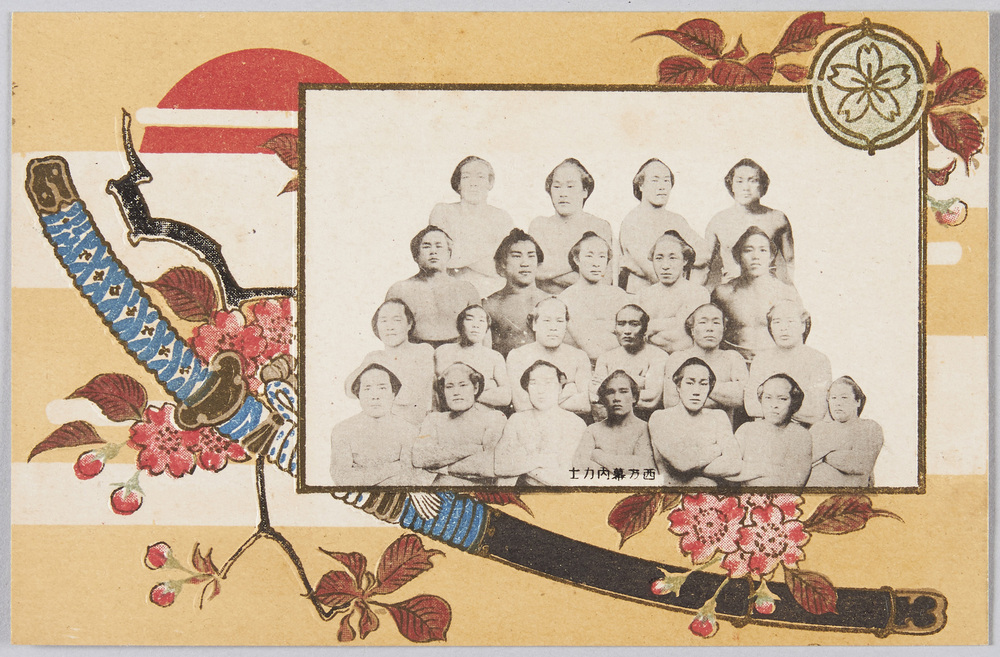 西方幕内力士